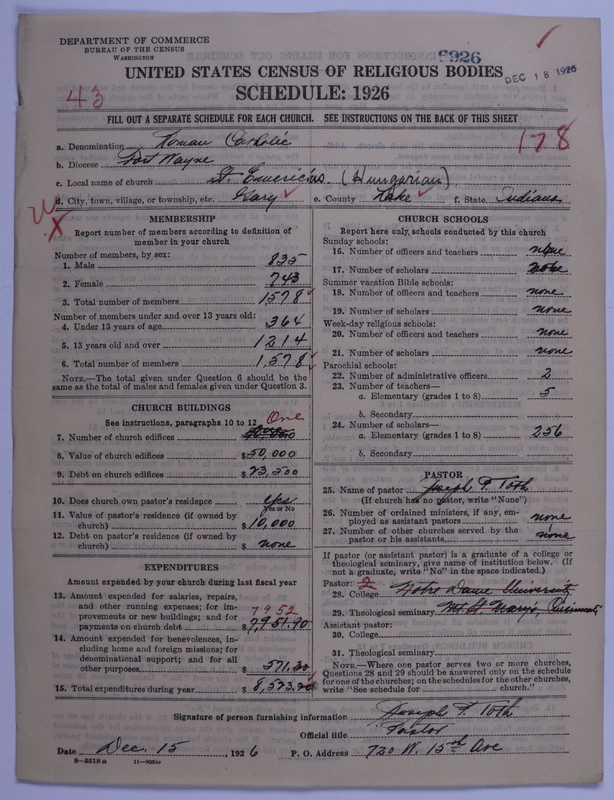 DEPARTMENT OF COMMERCE
BUREAU OF THE CENSUS
WASHINGTON
6926
DEC 18 1926
UNITED STATES CENSUS OF RELIGIOUS BODIES
SCHEDULE: 1926
43
FILL OUT A SEPARATE SCHEDULE FOR EACH CHURCH. SEE INSTRUCTIONS ON THE BACK OF THIS SHEET
178
a. Denomination Roman Catholic
b. Diocese Fort Wayne
c. Local name of church St. Emericus (Hungarian)
d. City, town, village, or township, etc. Gary e. County Lake f. State Indiana
MEMBERSHIP
Report number of members according to definition of
member in your church
Number of members, by sex:
1. Male 835
2. Female 743
3. Total number of members 1578
Number of members under and over 13 years old:
4. Under 13 years of age 364
5. 13 years old and over 1214
6. Total number of members 1,578
NOTE.—The total given under Question 6 should be the
same as the total of males and females given under Question 3.
CHURCH BUILDINGS
See instructions, paragraphs 10 to 12 One
7. Number of church edifices
8. Value of church edifices $50,000
9. Debt on church edifices $23,500
10. Does church own pastor's residence yes
Yes or No
11. Value of pastor's residence (if owned by
church) $10,000
12. Debt on pastor's residence (if owned by
church) $ none
EXPENDITURES
Amount expended by your church during last fiscal year
13. Amount expended for salaries, repairs,
and other running expenses; for im-
provements or new buildings; and for 7952
payments on church debt $7951.90
14. Amount expended for benevolences, in-
cluding home and foreign missions; for
denominational support; and for all
other purposes $ 571.30
15. Total expenditures during year $ 8,523.20
CHURCH SCHOOLS
Report here only, schools conducted by this church
Sunday schools:
16. Number of officers and teachers none
17. Number of scholars none
Summer vacation Bible schools:
18. Number of officers and teachers none
19. Number of scholars none
Week-day religious schools:
20. Number of officers and teachers none
21. Number of scholars none
Parochial schools:
22. Number of administrative officers 2
23. Number of teachers—
a. Elementary (grades 1 to 8) 5
b. Secondary
24. Number of scholars—
a. Elementary (grades 1 to 8) 256
b. Secondary
PASTOR
25. Name of pastor Joseph F. Toth
(If church has no pastor, write "None")
26. Number of ordained ministers, if any, em-
ployed as assistant pastors none
27. Number of other churches served by the
pastor or his assistants none
If pastor (or assistant pastor) is a graduate of a college or
theological seminary, give name of institution below. (If
not a graduate, write "No" in the space indicated.)
Pastor: 2
28. College Notre Dame University
29. Theological seminary Mt St Mary's Cincinnati
Assistant pastor:
30. College
31. Theological seminary
NOTE.—Where one pastor serves two or more churches,
Questions 28 and 29 should be answered only on the schedule
for one of the churches; on the schedules for the other churches,
write "See schedule for church."
Signature of person furnishing information Joseph F. Toth
Official title Pastor
Date Dec. 15, 1926 P. O. Address 720 W. 15th Ave
8—5518a 11—9051a